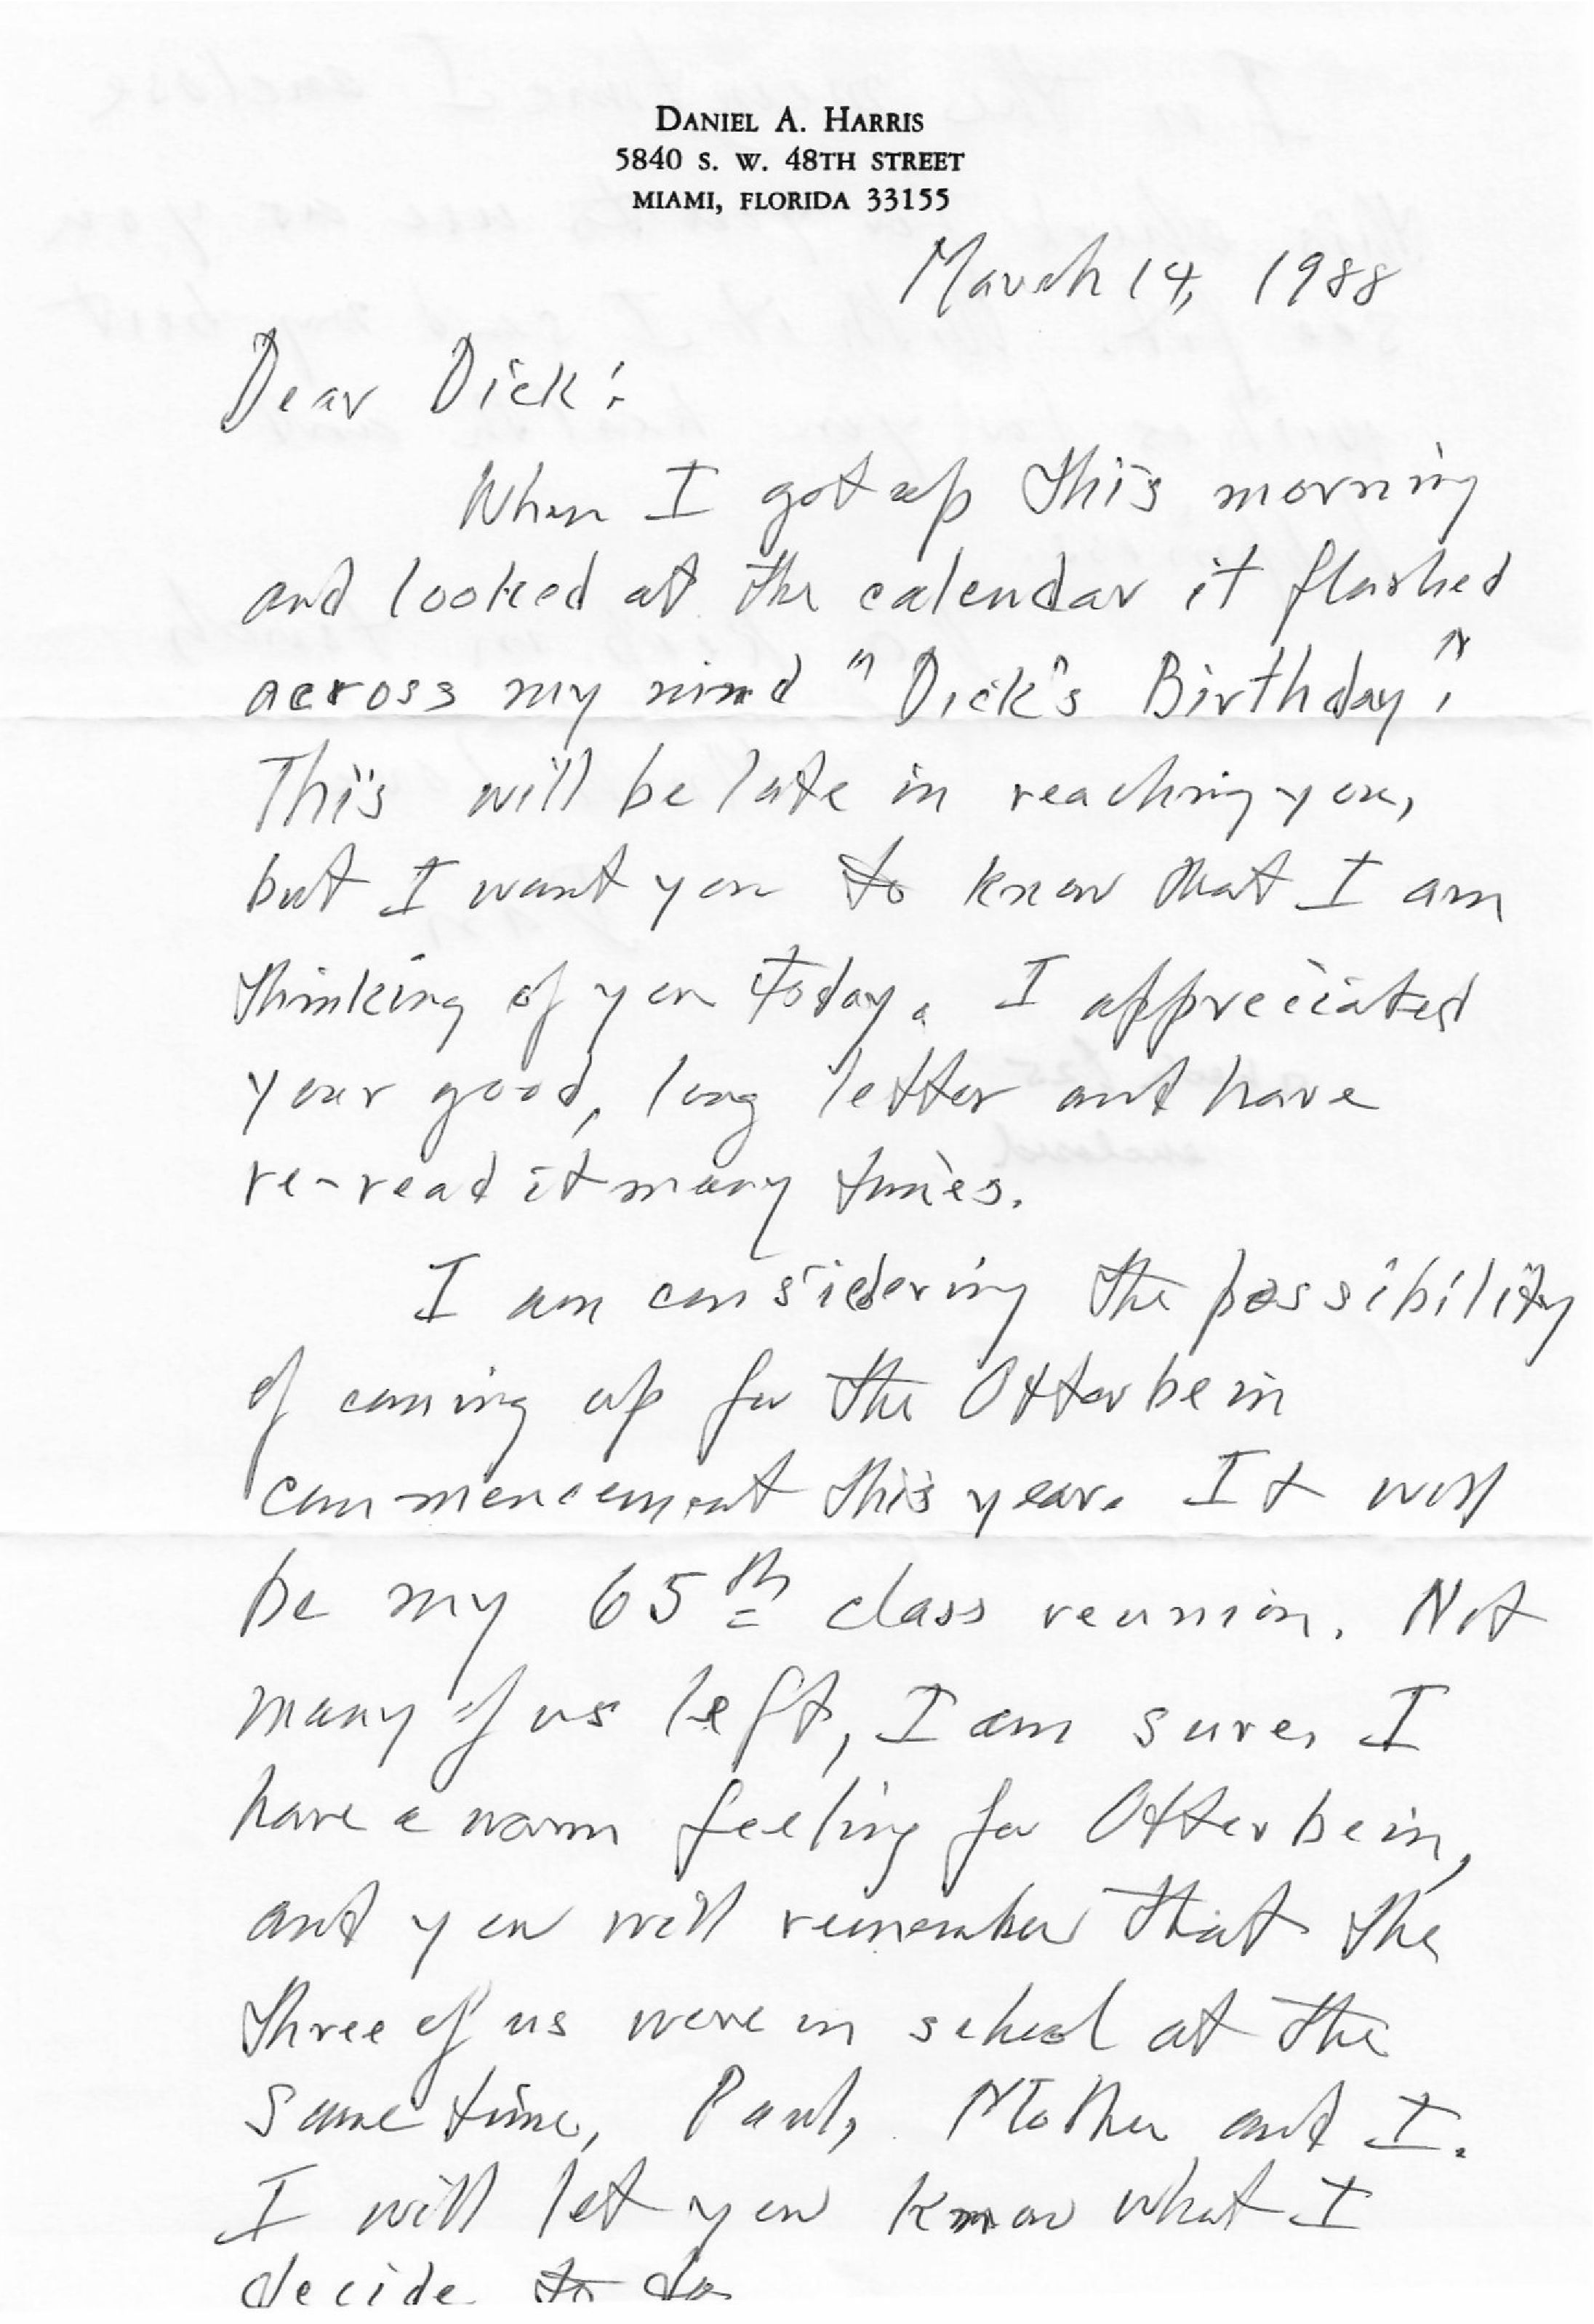 DANIEL A. HARRIS
5840 S. W. 48TH STREET
MIAMI, FLORIDA 33155
March 14, 1988
Dear Dick:
When I got up this morning
and looked at the calendar it flashed
across my mind "Dick's Birthday".
This will be late in reaching you,
but I want you to know that I am
thinking of you today. I appreciated
your good, long letter and have
re-read it many times.
I am considering the possibility
of coming up for the Otterbein
commencement this year. It will
be my 65th class reunion. Not
many of us left, I am sure. I
have a warm feeling for Otterbein,
and you will remember that the
three of us were in school at the
same time, Paul, Mother and I.
I will let you know what I
decide to do